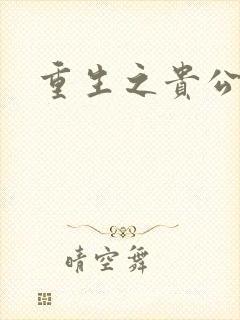 重生之贵公
晴空舞